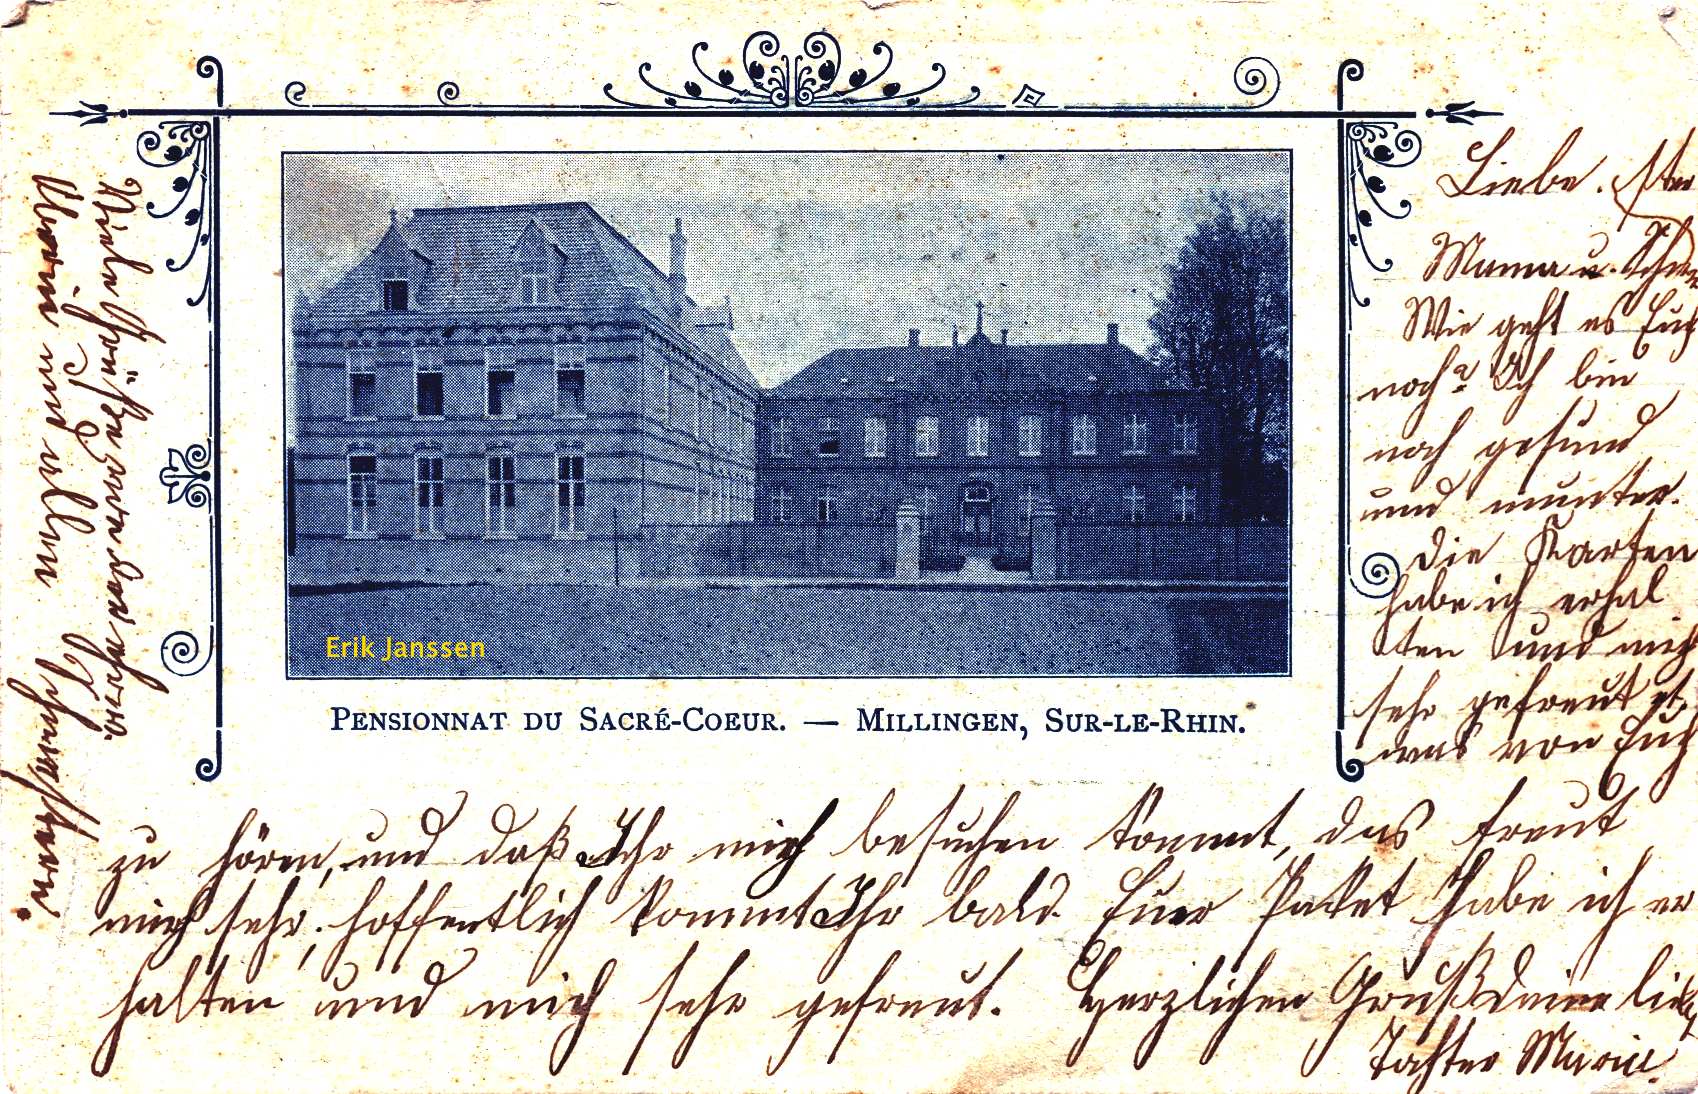 Liebe
Mama u.
Wie geht es Euch
noch? Ich bin
noch gesund
und munter.
Die Karten
habe ich erhal
ten und mich
sehr gefreut et,
was von Euch
zu hören, und daß Ihr mich besuchen kommt, das freut
mich sehr, hoffentlich kommt Ihr bald. Euer Packet habe ich er
halten und mich sehr gefreut. Herzlichen Gruß deine
Tochter Marie.
Viele Grüße
und allen Schwestern.
Erik Janssen
PENSIONNAT DU SACRÉ-COEUR. — MILLINGEN, SUR-LE-RHIN.